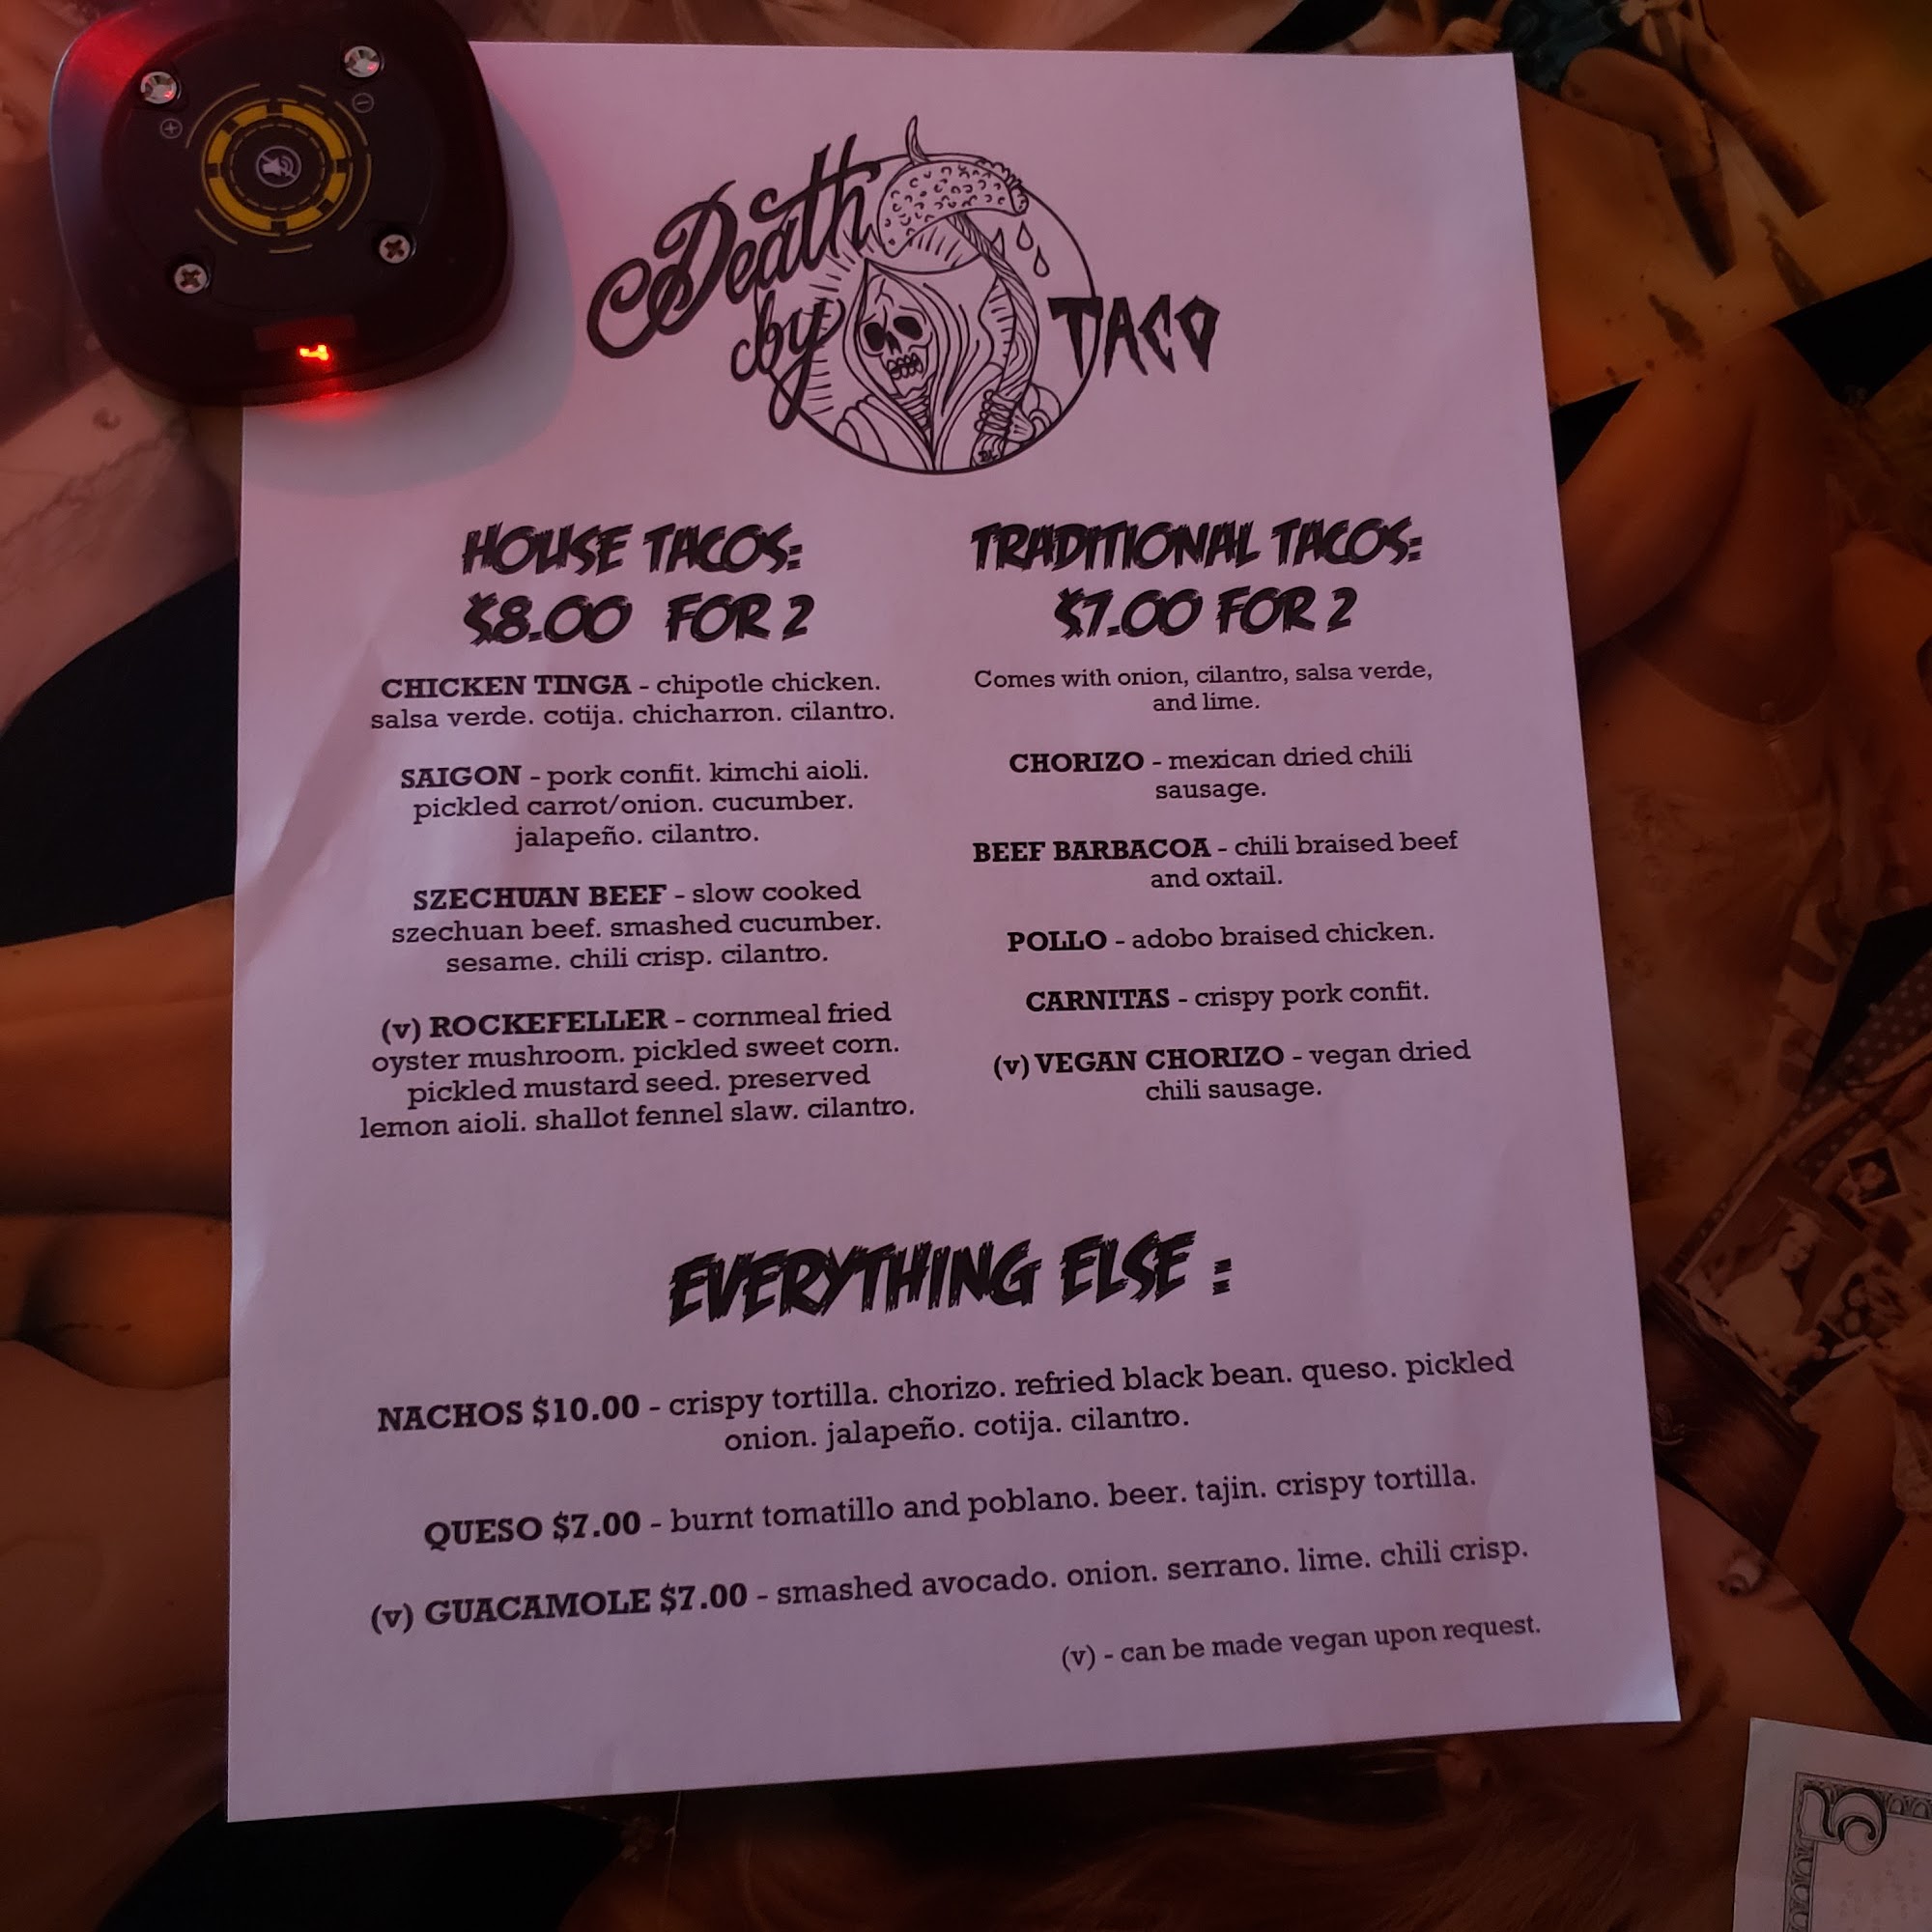 Death
by
TACO
HOUSE TACOS:
$8.00 FOR 2
CHICKEN TINGA - chipotle chicken.
salsa verde. cotija. chicharron. cilantro.
SAIGON - pork confit. kimchi aioli.
pickled carrot/onion. cucumber.
jalapeño. cilantro.
SZECHUAN BEEF - slow cooked
szechuan beef. smashed cucumber.
sesame. chili crisp. cilantro.
(v) ROCKEFELLER - cornmeal fried
oyster mushroom. pickled sweet corn.
pickled mustard seed. preserved
lemon aioli. shallot fennel slaw. cilantro.
TRADITIONAL TACOS:
$7.00 FOR 2
Comes with onion, cilantro, salsa verde,
and lime.
CHORIZO - mexican dried chili
sausage.
BEEF BARBACOA - chili braised beef
and oxtail.
POLLO - adobo braised chicken.
CARNITAS - crispy pork confit.
(v) VEGAN CHORIZO - vegan dried
chili sausage.
EVERYTHING ELSE :
NACHOS $10.00 - crispy tortilla. chorizo. refried black bean. queso. pickled
onion. jalapeño. cotija. cilantro.
QUESO $7.00 - burnt tomatillo and poblano. beer. tajin. crispy tortilla.
(v) GUACAMOLE $7.00 - smashed avocado. onion. serrano. lime. chili crisp.
(v) - can be made vegan upon request.
5